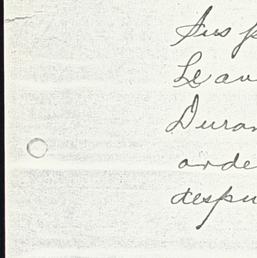 Sus p
Le au
Duran
orde
despu